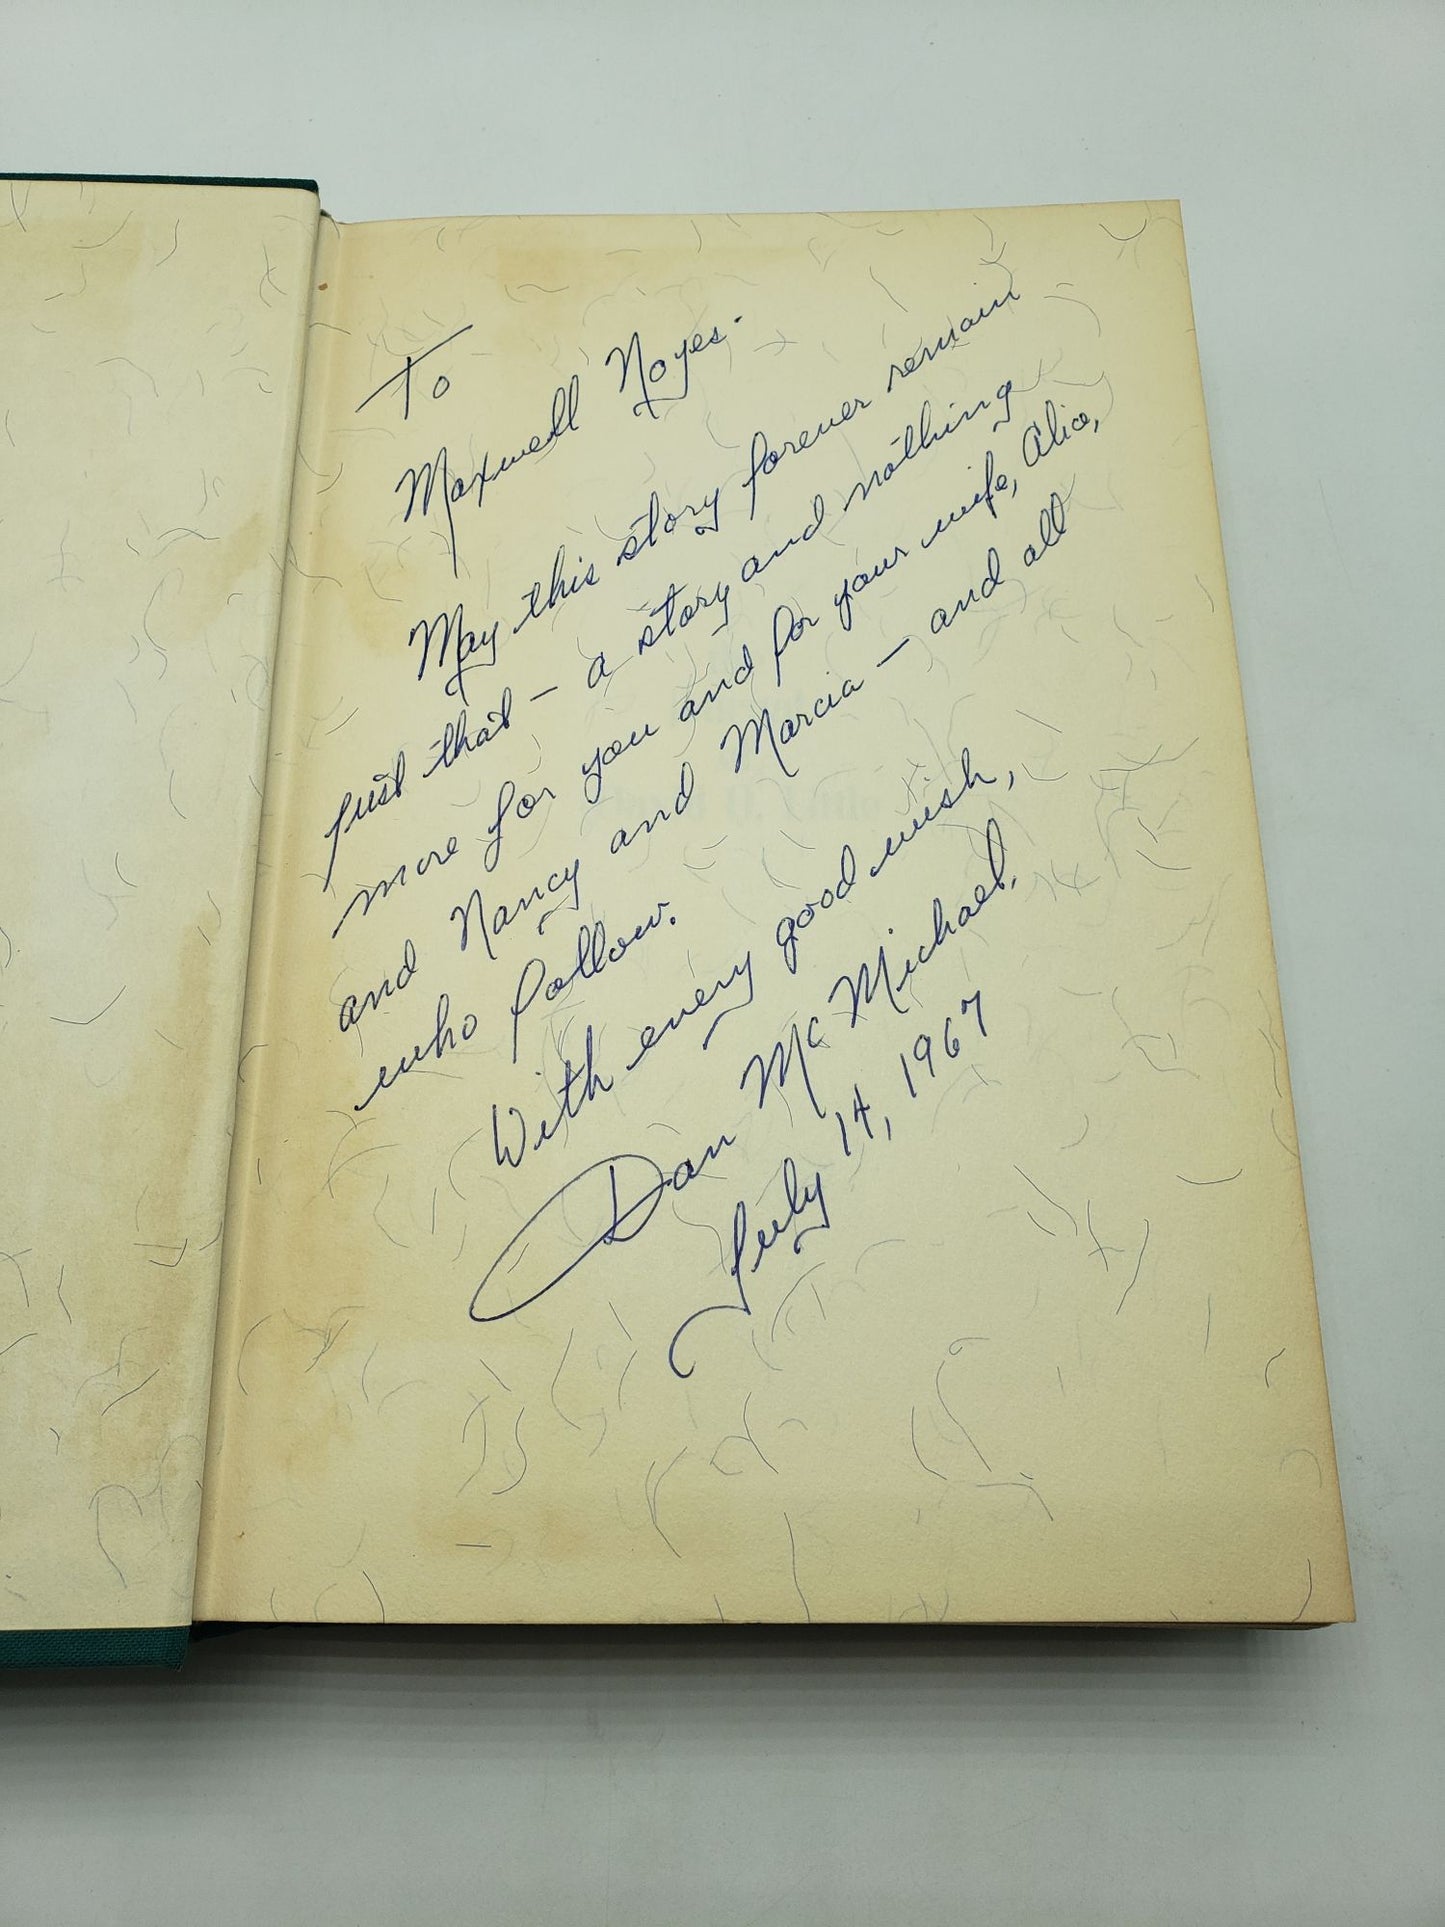 To
Maxwell Noyes.
May this story forever remain
just that — a story and nothing
more for you and for your wife, Alice,
and Nancy and Marcia — and all
who follow.
With every good wish,
Dan McMichael.
July 14, 1967